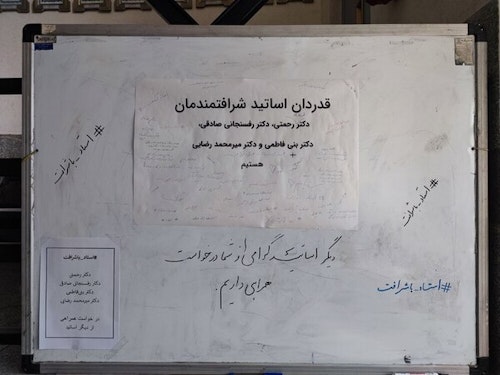 قدردان اساتید شرافتمندمان
دکتر رحمتی، دکتر رفسنجانی صادقی،
دکتر بنی فاطمی و دکتر میرمحمد رضایی
هستیم
#استاد_باشرافت
#استاد_باشرافت
دیگر اساتید گرامی از شما درخواست
همراهی داریم.
#استاد_باشرافت
#استاد_باشرافت
دکتر رحمتی
دکتر رفسنجانی صادقی
دکتر بنی‌فاطمی
دکتر میرمحمد رضایی
در خواست همراهی
از دیگر اساتید